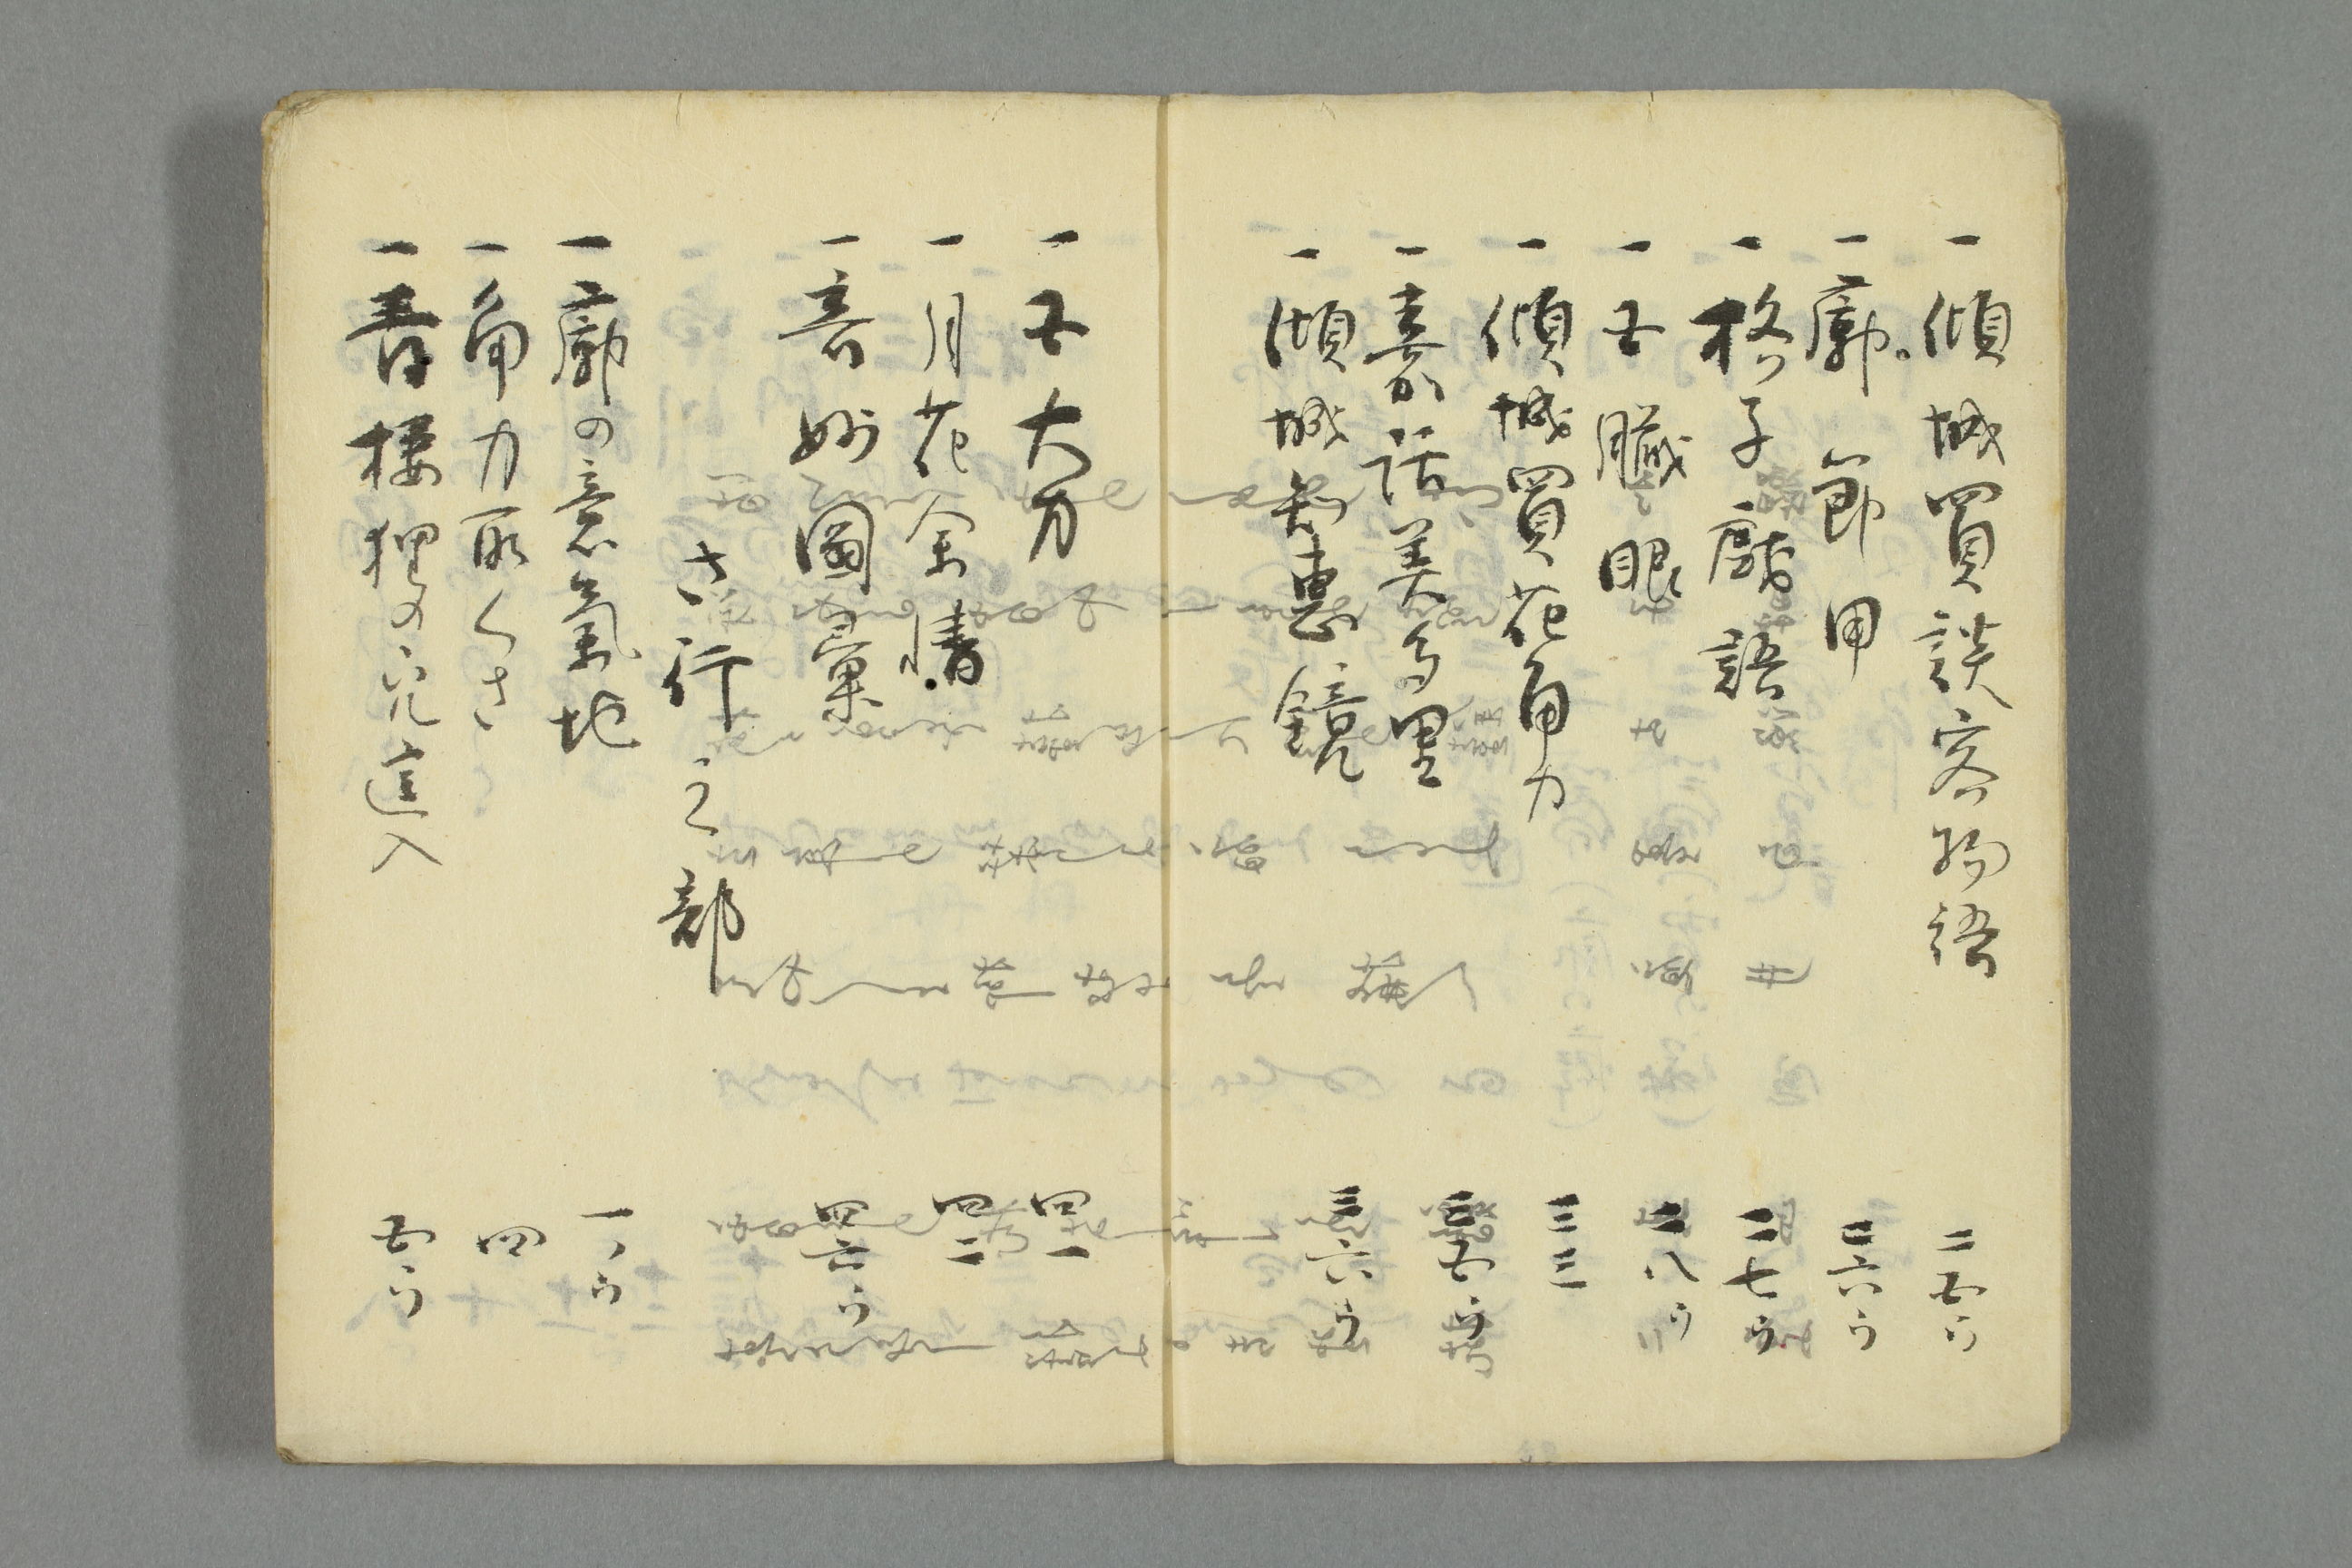 一 傾城買談客物語 二五ウ
一 廓。節用 二六ウ
一 格子戯語 二七ウ
一 五臓眼 二八ウ
一 傾城買花角力 三三
一 嘉話美多里 三五ウ
一 傾城知恵鏡 三六ウ
一 五大力 四一
一 月花余情 四二
一 音妙図彙 四六ウ
さ行之部
一 廓の意気地 一ウ
一 角力取くさ 四
一 青楼狸の穴這入 五ウ